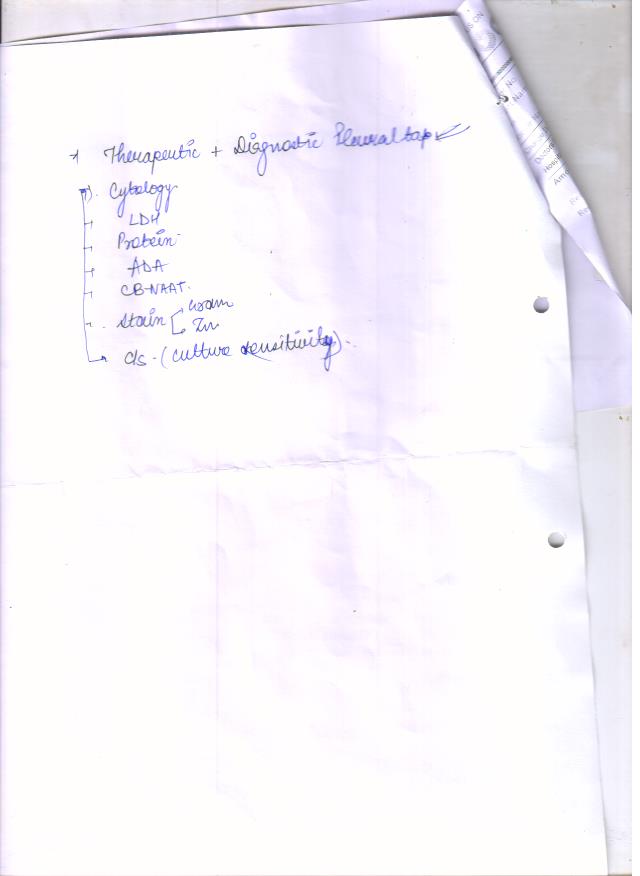 Therapeutic + Diagnostic Pleural tap
Cytology
LDH
Protein
ADA
CB-NAAT.
Stain Gram
Zn
c/s - (culture sensitivity)